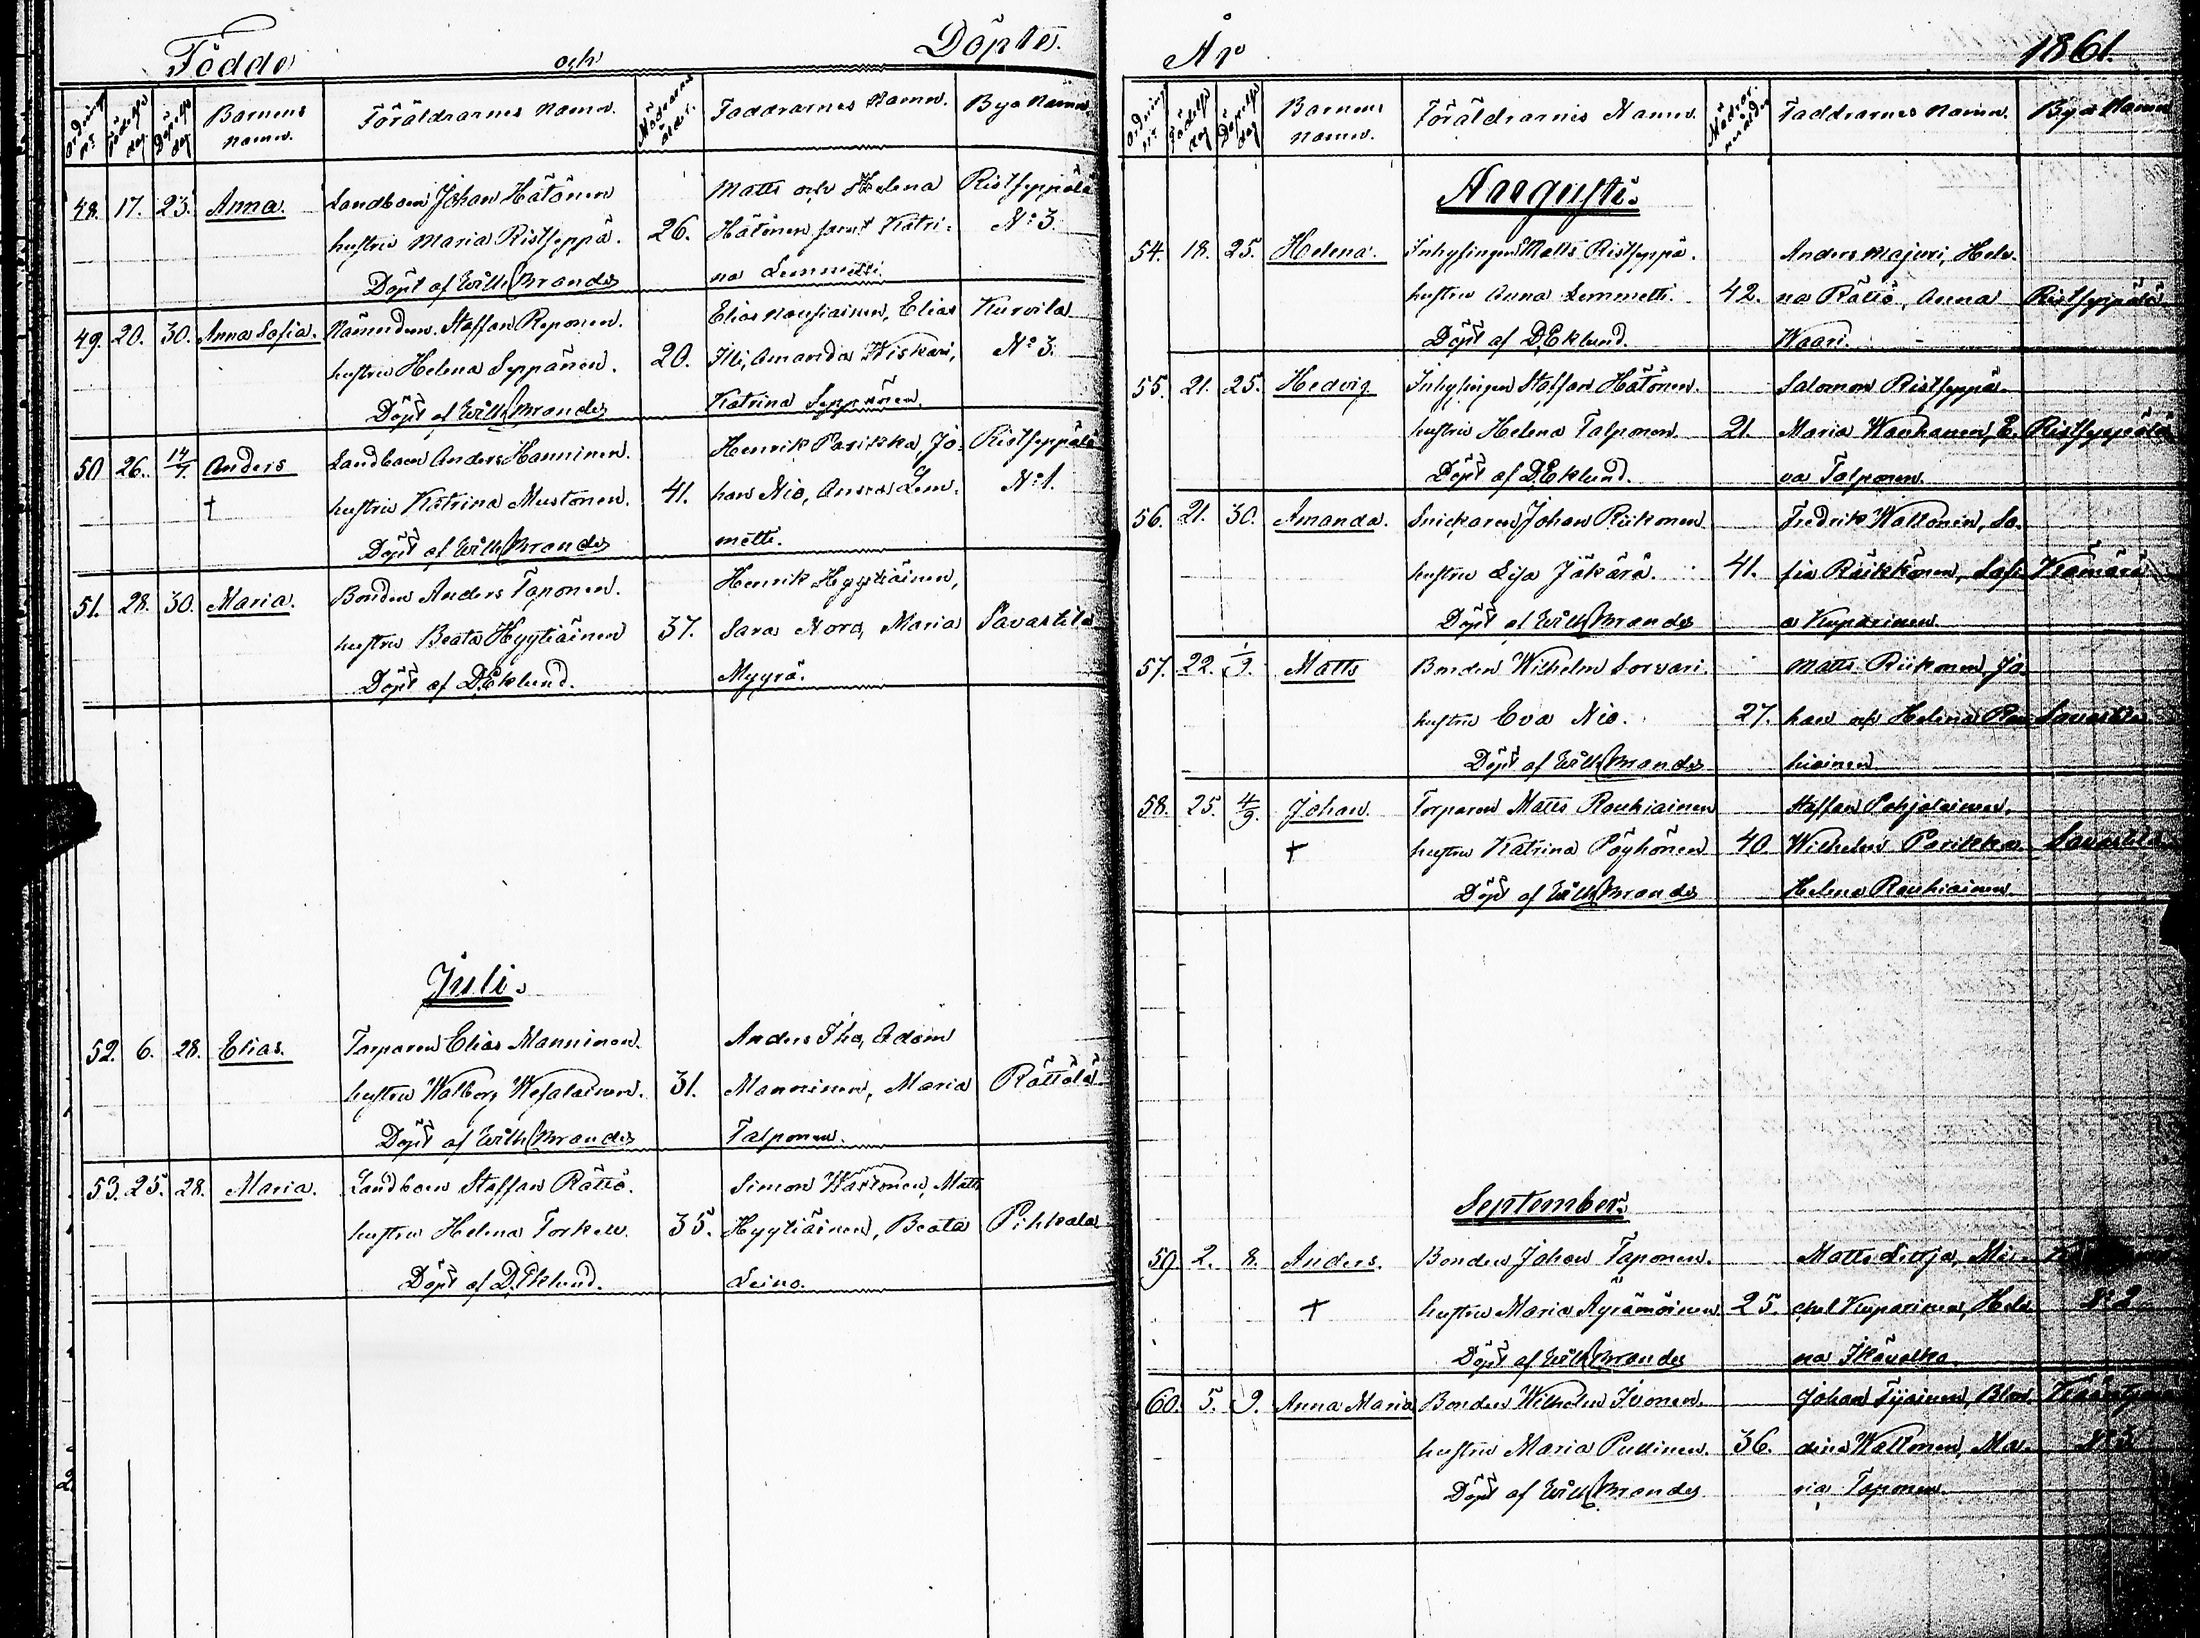 Födde och Döpte
Ordnings n:r Födelse dag Döpelse dag Barnens namn. Föräldrarnes namn. Mödrarnes ålder. Faddrarnes Namn. Bya Namn
48. 17. 23. Anna. Landboen Johan Hätönen Matts och Helena Ristseppälä
hustru Maria Ristseppä. 26. Hätönen samt Katri- N:o 3.
Döpt af Wilh Brander na Lemmetti.
49. 20. 30. Anna Sofia. Nämndem. Staffan Reponen. Elias Nousiainen, Elias Kurvila
hustru Helena Seppänen. 20. Illi, Amanda Wiskari, N:o 3.
Döpt af Wilh Brander Katrina Seppänen.
50 26. 14/7. Anders Landboen Anders Hanninen. Henrik Parikka, Jo- Ristseppälä
† hustru Katrina Mustonen. 41. han Nio, Anna Lem- N:o 1.
Döpt af Wilh Brander metti.
51. 28. 30. Maria. Bonden Anders Taponen. Henrik Hyytiäinen,
hustru Beata Hyytiäinen 37. Sara Nord, Maria Savastila
Döpt af D. Eklund. Myyrä.
Juli.
52. 6. 28. Elias. Torparen Elias Manninen. Anders Iho, Adam
hustru Walborg Wesalainen. 31. Manninen, Maria Rättölä
Döpt af Wilh Brander Talponen.
53. 25. 28. Maria. Landboen Staffan Rättö. Simon Wartonen, Matts
hustru Helena Torkell. 35. Hyytiäinen, Beata Pihkala
Döpt af D. Eklund. Leino.
År 1861.
Ordnings n:r Födelse dag Döpelse dag Barnens namn. Föräldrarnes Namn. Faddrarnes namn. Bya Namn
Augusti.
54. 18. 25. Helena. Inhysingen Matts Ristseppä. Anders Majuri, Hele-
hustru Anna Lemmetti. 42. na Rättö, Anna Ristseppälä
Döpt af D. Eklund. Waari.
55. 21. 25. Hedvig Inhysingen Staffan Hätönen. Salomon Ristseppä.
hustru Helena Talponen 21. Maria Wauhanen, E- Ristseppälä
Döpt af D. Eklund. va Talponen.
56. 21. 30. Amanda. Snickaren Johan Riikonen Fredrik Waltonen, So-
hustru Lisa Jäkärä. 41. fia Räikkönen, Sofi- Kämärä
Döpt af Wilh Brander a Kuparinen.
57. 22. 1/9. Matts Bonden Wilhelm Sorvari. Matts Riikonen, Jo-
hustru Eva Nio. 27. han och Helena Rou- Savastila
Döpt af Wilh Brander hiainen
58. 25. 4/9. Johan. Torparen Matts Rouhiainen Staffan Pohjolainen,
† hustru Katrina Pöyhönen 40. Wilhelm Parikka Savastila
Döpt af Wilh Brander Helena Rouhiainen
September.
59 2. 8. Anders. Bonden Johan Taponen. Matts Littja, Mi-
† hustru Maria Äyrämöinen 25. chel Kuparinen, Hele- N:o 2
Döpt af Wilh Brander na Ikävalko.
60. 5. 9. Anna Maria Bonden Wilhelm Ivonen. Johan Tyäinen, Blon-
hustru Maria Pullinen. 36. dina Waltonen, Ma- N:o 3
Döpt af Wilh Brander ria Taponen.